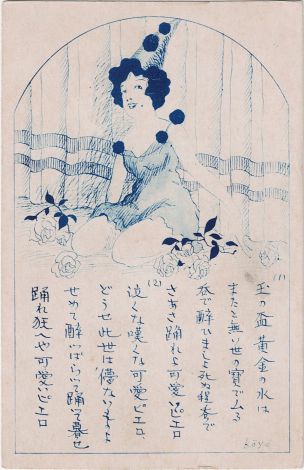 (1)
玉の盃黄金の水は
またと無い世の寶でムる
呑で醉ひましよ死ぬ程迄で
さあさ踊れよ可愛ピエロ
(2)
泣くな嘆くな可愛ピエロ
どうせ此世は儚ないものよ
せめて醉いぱらいて踊て暮せ
踊れ狂へや可愛いピエロ
Kōyō